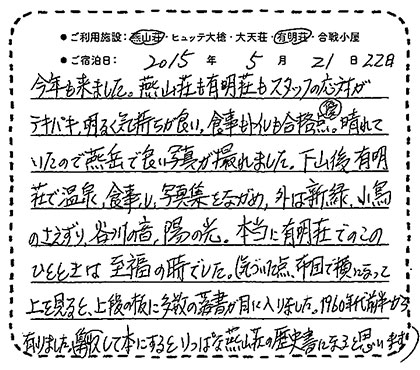 ●ご利用施設：燕山荘・ヒュッテ大槍・大天荘・有明荘・合戦小屋
●ご宿泊日： 2015 年 5 月 21日 22日
今年も来ました。燕山荘も有明荘もスタッフの応対が
テキパキ、明るく気持ちが良い、食事もトイレも合格点。晴れて
いたので燕岳で良い写真が撮れました。下山後有明
荘で温泉、食事し、写真集をながめ、外は新緑、小鳥
のさえずり、谷川の音、陽の光。本当に有明荘でのこの
ひとときは至福の時でした。（気づいた点、布団で横になって
上を見ると、上段の板に多数の落書が目に入りました。1960年代前半から
有りました。して本にするとりっぱな燕山荘の歴史書になると思います）